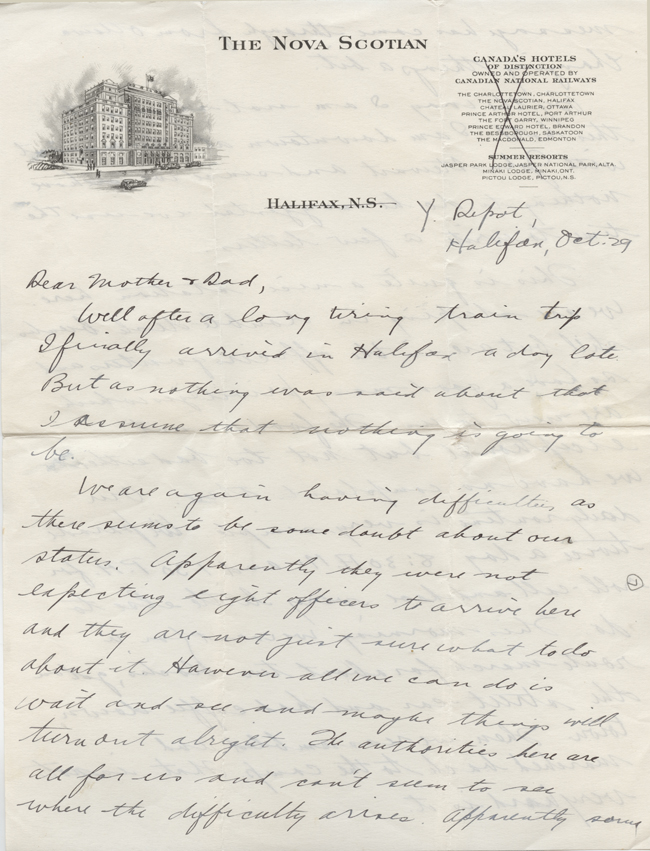 THE NOVA SCOTIAN
CANADA'S HOTELS
OF DISTINCTION
OWNED AND OPERATED BY
CANADIAN NATIONAL RAILWAYS
THE CHARLOTTETOWN, CHARLOTTETOWN
THE NOVA SCOTIAN, HALIFAX
CHATEAU LAURIER, OTTAWA
PRINCE ARTHUR HOTEL, PORT ARTHUR
THE FORT GARRY, WINNIPEG
PRINCE EDWARD HOTEL, BRANDON
THE BESSBOROUGH, SASKATOON
THE MACDONALD, EDMONTON
SUMMER RESORTS
JASPER PARK LODGE, JASPER NATIONAL PARK, ALTA.
MINAKI LODGE, MINAKI, ONT.
PICTOU LODGE, PICTOU, N.S.
HALIFAX, N.S.
Y. Depot,
Halifax, Oct. 29
Dear Mother & Dad,
Well after a long tiring train trip
I finally arrived in Halifax a day late.
But as nothing was said about that
I assume that nothing is going to
be.
We are again having difficulties as
there seems to be some doubt about our
status. Apparently they were not
expecting eight officers to arrive here
and they are not just sure what to do
about it. However all we can do is
wait and see and maybe things will
turn out alright. The authorities here are
all for us and can't seem to see
where the difficulty arises. Apparently some